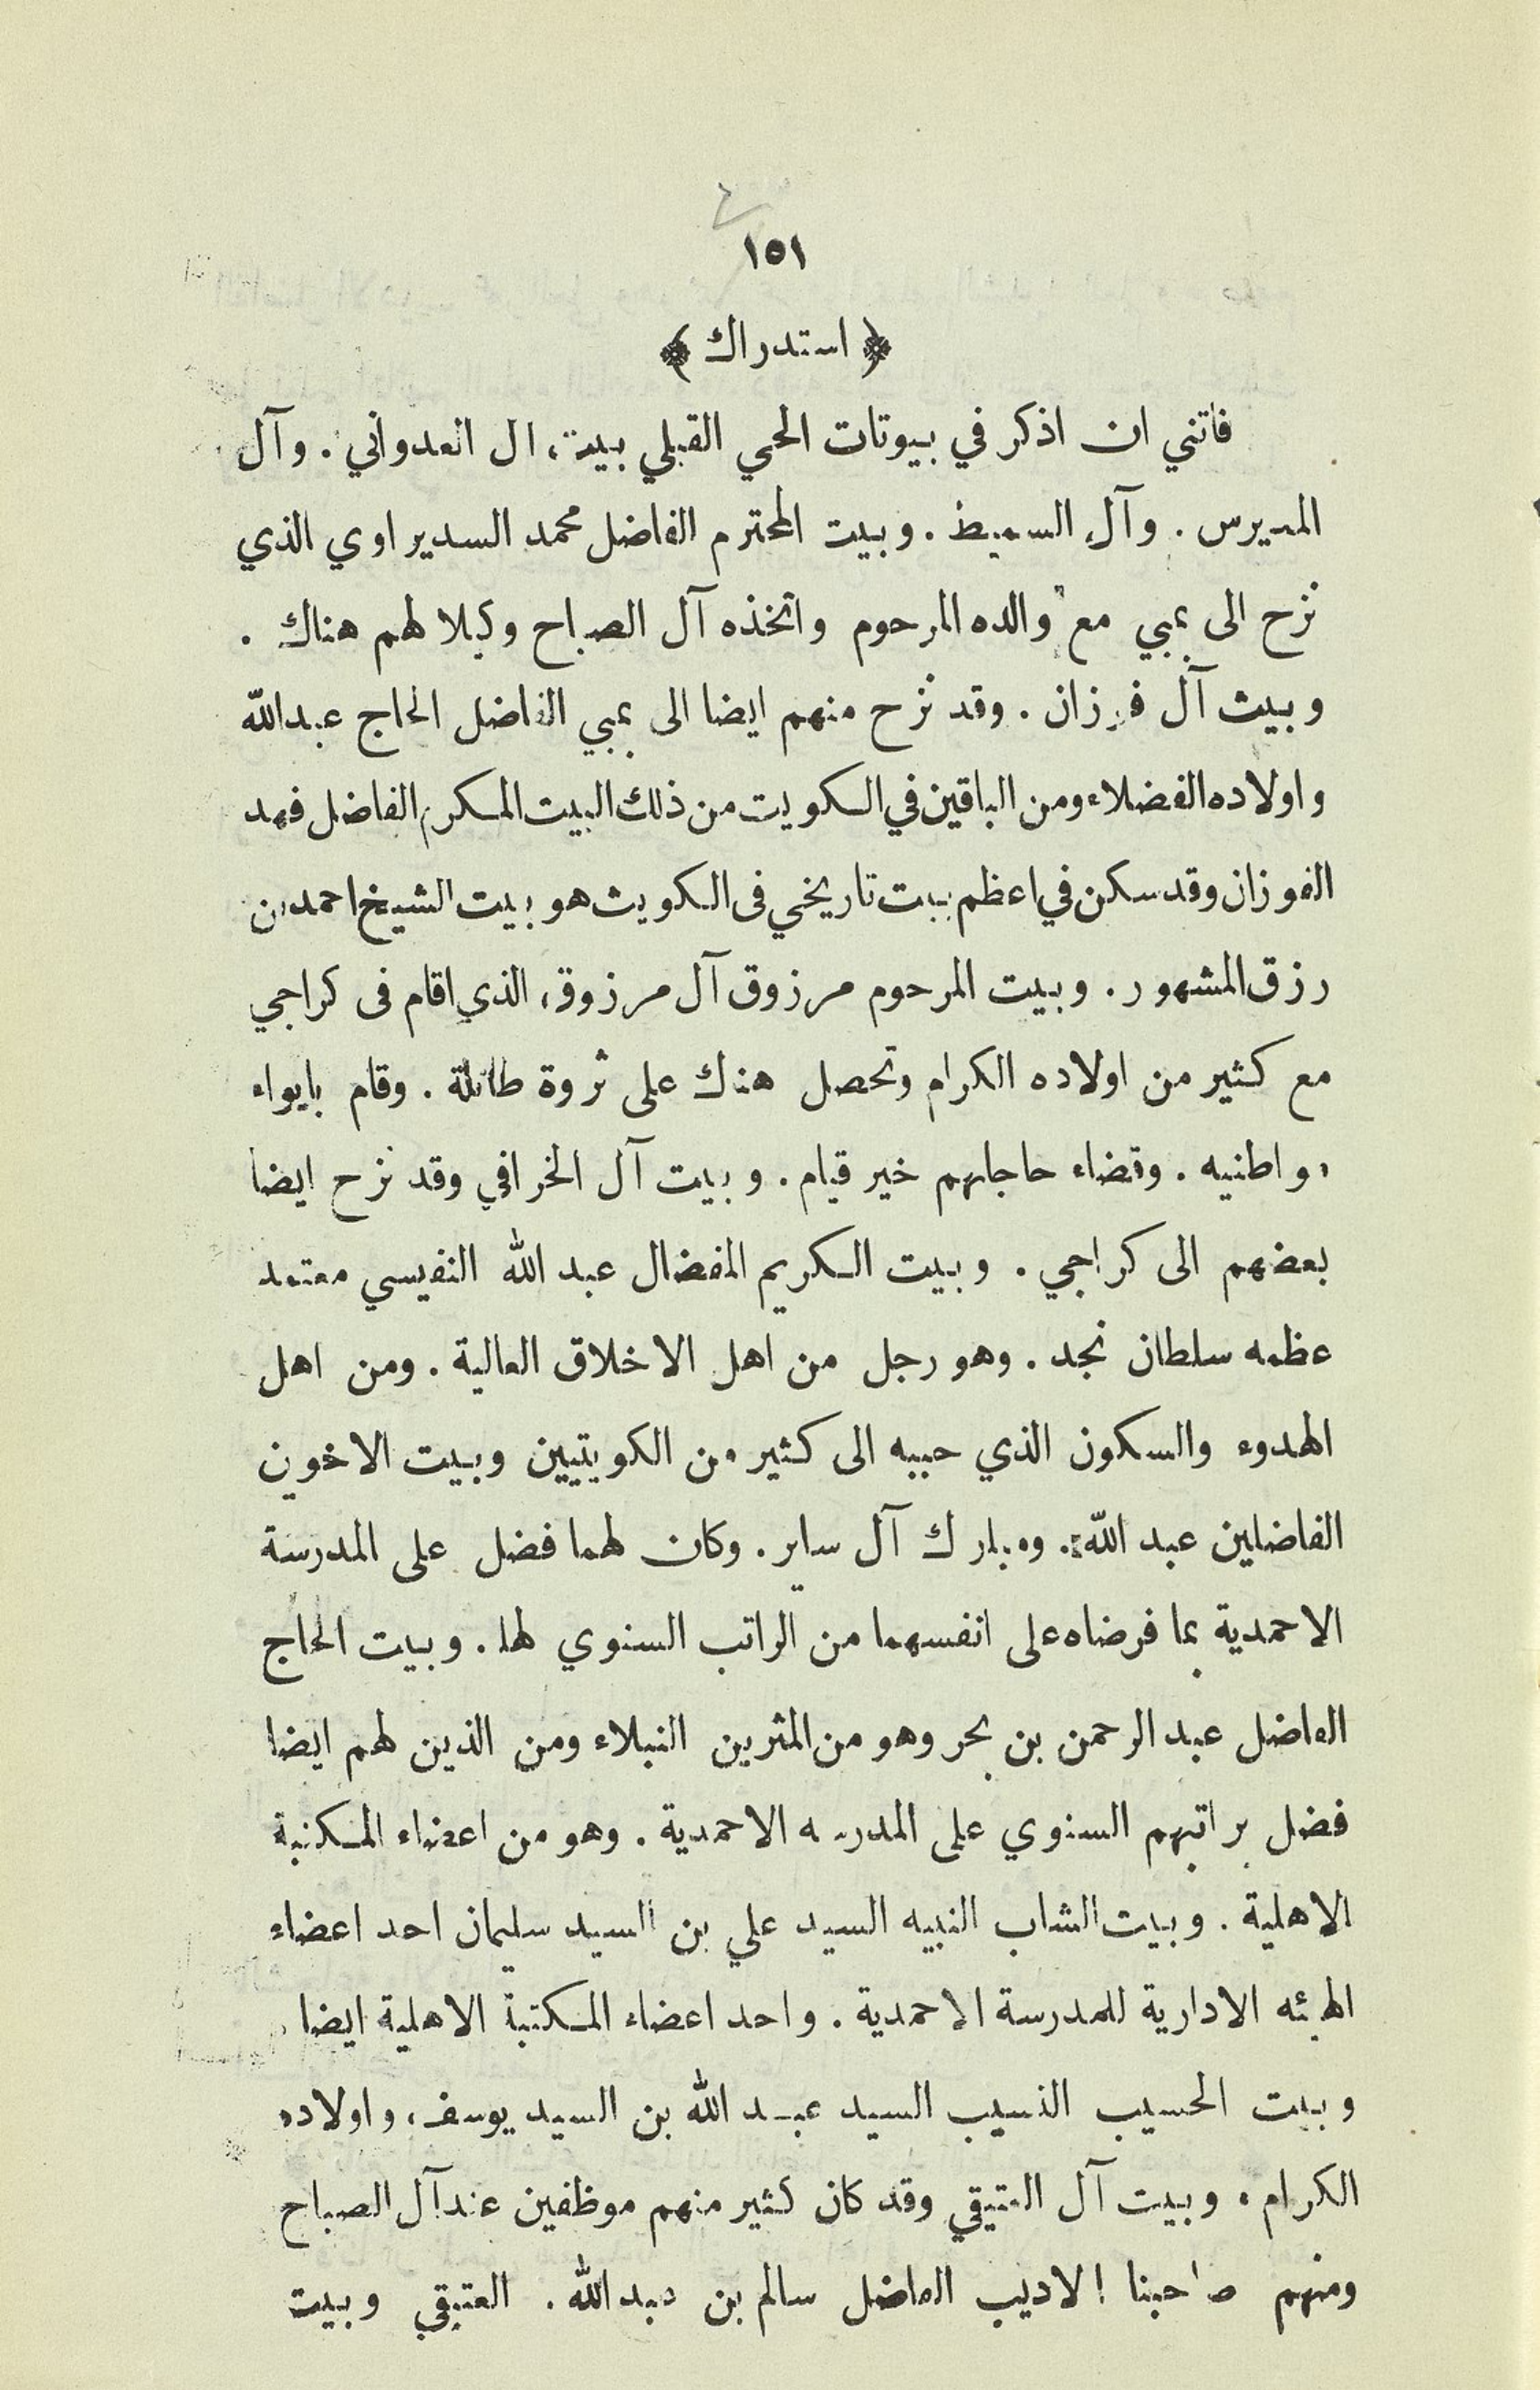 ١٥١
﴿ استدراك ﴾
فاتني ان اذكر في بيوتات الحي القبلي بيت، ال العدواني . وآل
المديرس . وآل السميط . وبيت المحترم الفاضل محمد السديراوي الذي
نزح الى بمبي مع والده المرحوم واتخذه آل الصباح وكيلا لهم هناك .
وبيت آل فوزان . وقد نزح منهم ايضا الى بمبي الفاضل الحاج عبدالله
واولاده الفضلاء ومن الباقين في الكويت من ذلك البيت المكرم الفاضل فهد
الفوزان وقد سكن في اعظم بيت تاريخي فى الكويت هو بيت الشيخ احمد بن
رزق المشهور . وبيت المرحوم مرزوق آل مرزوق، الذي اقام فى كراجي
مع كثير من اولاده الكرام وتحصل هناك على ثروة طائلة . وقام بايواء
مواطنيه . وقضاء حاجاتهم خير قيام . وبيت آل الخرافي وقد نزح ايضا
بعضهم الى كراجي . وبيت الكريم المفضال عبد الله النفيسي معتمد
عظمه سلطان نجد . وهو رجل من اهل الاخلاق العالية . ومن اهل
الهدوء والسكون الذي حببه الى كثير من الكويتيين وبيت الاخوين
الفاضلين عبد الله . ومبارك آل ساير . وكان لهما فضل على المدرسة
الاحمدية بما فرضاه على انفسهما من الراتب السنوي لها . وبيت الحاج
الفاضل عبد الرحمن بن بحر وهو من المثرين النبلاء ومن الذين لهم ايضا
فضل براتبهم السنوي على المدرسه الاحمدية . وهو من اعضاء المكتبة
الاهلية . وبيت الشاب النبيه السيد علي بن السيد سليمان احد اعضاء
الهيئه الادارية للمدرسة الاحمدية . واحد اعضاء المكتبة الاهلية ايضا .
وبيت الحسيب النسيب السيد عبد الله بن السيد يوسف، واولاده
الكرام . وبيت آل العتيقي وقد كان كثير منهم موظفين عند آل الصباح
ومنهم صاحبنا الاديب الفاضل سالم بن عبد الله . العتيقي وبيت